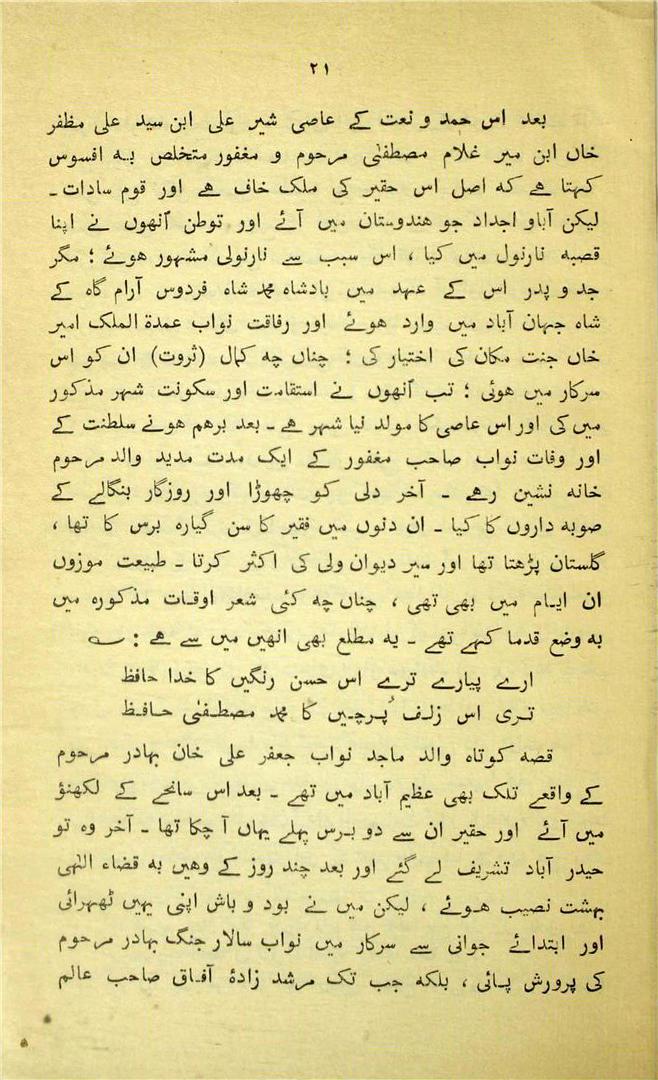 ۲۱
بعد اس حمد و نعت کے عاصی شیر علی ابن سید علی مظفر
خاں ابن میر غلام مصطفیٰ مرحوم و مغفور متخلص بہ افسوس
کہتا ہے کہ اصل اس حقیر کی ملک خاف ہے اور قوم سادات ۔
لیکن آباو اجداد جو ہندوستان میں آئے اور توطن اُنھوں نے اپنا
قصبہ نارنول میں کیا ، اس سبب سے نارنولی مشہور ہوئے ؛ مگر
جد و پدر اس کے عہد میں بادشاہ محمد شاہ فردوس آرام گاہ کے
شاہ جہان آباد میں وارد ہوئے اور رفاقت نواب عمدۃ الملک امیر
خاں جنت مکان کی اختیار کی ؛ چناں چہ کمال (ثروت) ان کو اس
سرکار میں ہوئی ؛ تب اُنھوں نے استقامت اور سکونت شہر مذکور
میں کی اور اس عاصی کا مولد نیا شہر ہے ۔ بعد برہم ہونے سلطنت کے
اور وفات نواب صاحب مغفور کے ایک مدت مدید والد مرحوم
خانہ نشین رہے ۔ آخر دلی کو چھوڑا اور روزگار بنگالے کے
صوبہ داروں کا کیا ۔ ان دنوں میں فقیر کا سن گیارہ برس کا تھا ،
گلستان پڑھتا تھا اور سیر دیوان ولی کی اکثر کرتا ۔ طبیعت موزوں
ان ایام میں بھی تھی ، چناں چہ کئی شعر اوقات مذکورہ میں
بہ وضع قدما کہے تھے ۔ یہ مطلع بھی انھیں میں سے ہے :
ارے پیارے ترے اس حسن رنگیں کا خدا حافظ
تری اس زلف پُرچیں کا محمد مصطفیٰ حافظ
قصہ کوتاہ والد ماجد نواب جعفر علی خان بہادر مرحوم
کے واقعے تلک بھی عظیم آباد میں تھے ۔ بعد اس سانحے کے لکھنؤ
میں آئے اور حقیر ان سے دو برس پہلے یہاں آ چکا تھا ۔ آخر وہ تو
حیدر آباد تشریف لے گئے اور بعد چند روز کے وہیں بہ قضاء الٰہی
بہشت نصیب ہوئے ، لیکن میں نے بود و باش اپنی یہیں ٹھہرائی
اور ابتدائے جوانی سے سرکار میں نواب سالار جنگ بہادر مرحوم
کی پرورش پائی ، بلکہ جب تک مرشد زادۂ آفاق صاحب عالم